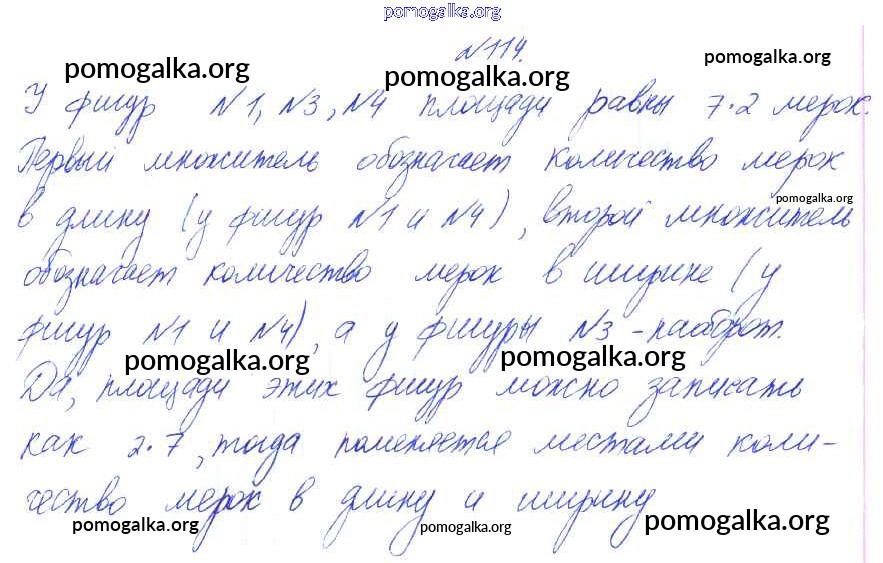 pomogalka.org
№114.
pomogalka.org pomogalka.org pomogalka.org
У фигур №1, №3, №4 площади равны 7·2 мерок.
Первый множитель обозначает количество мерок
pomogalka.org
в длину (у фигур №1 и №4), второй множитель
обозначает количество мерок в ширине (у
фигур №1 и №4), а у фигуры №3 - наоборот.
pomogalka.org pomogalka.org
Да, площади этих фигур можно записать
как 2·7, тогда поменяется местами коли-
чество мерок в длину и ширину
pomogalka.org pomogalka.org pomogalka.org